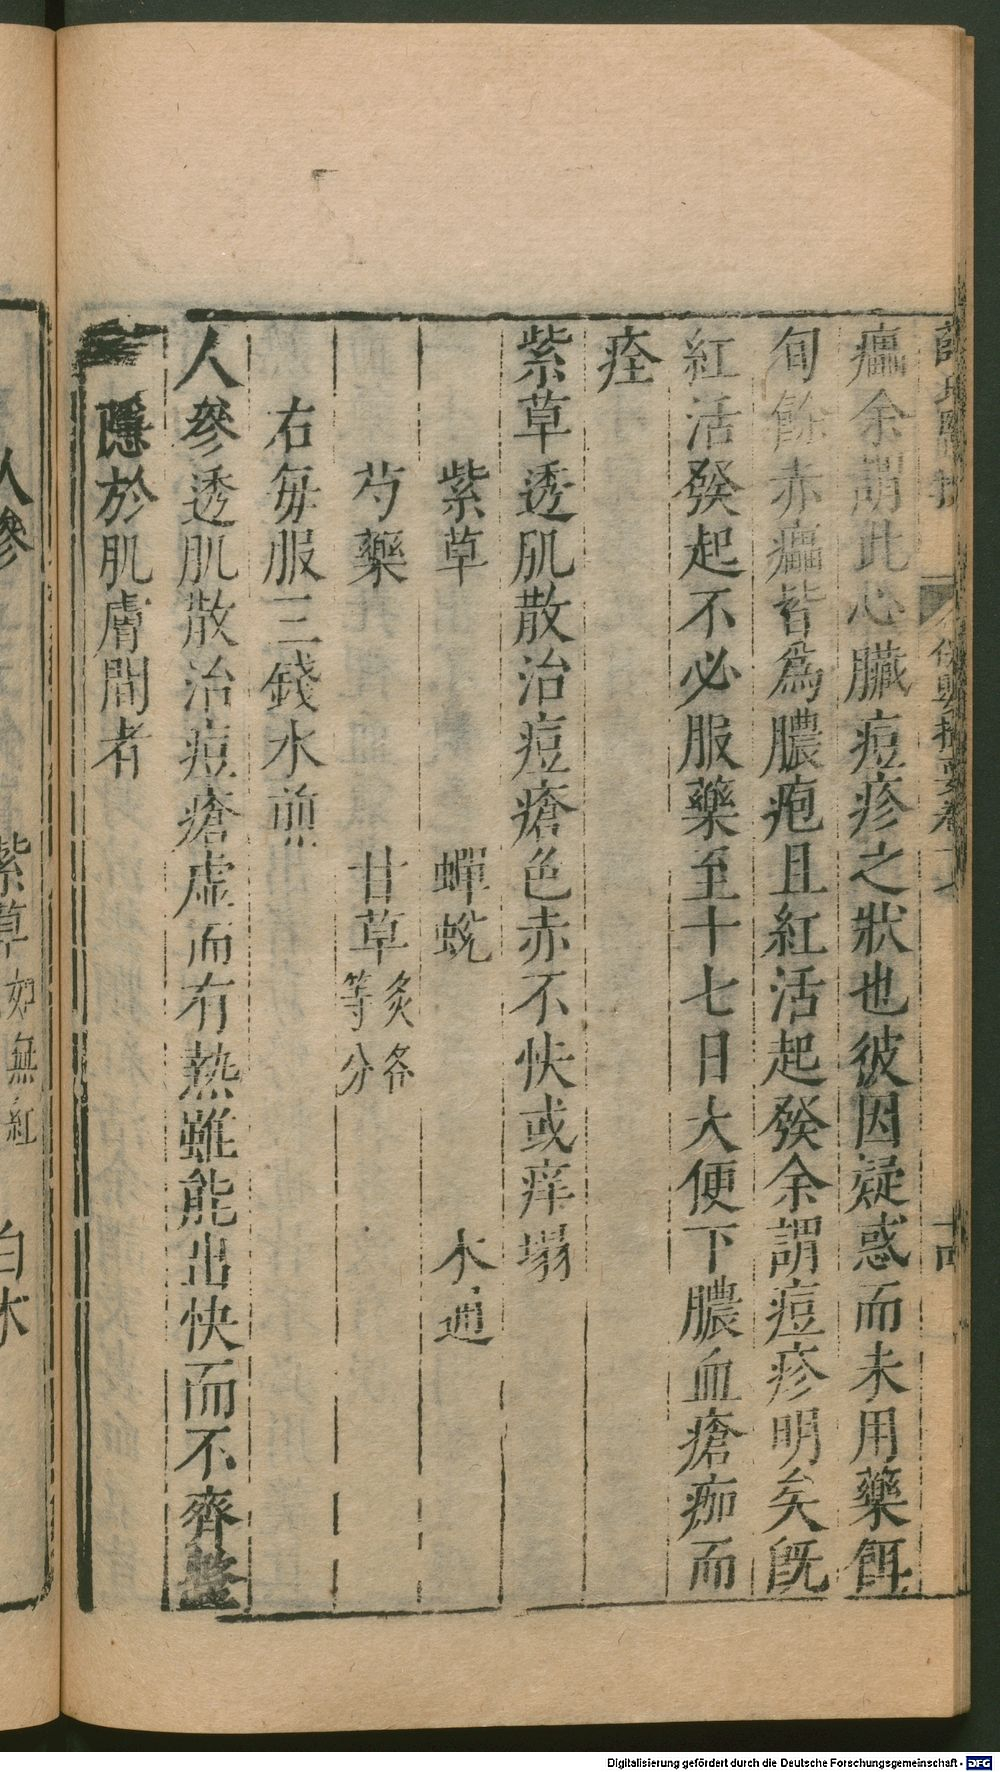 癗余謂此心臟痘疹之狀也彼因疑惑而未用藥餌
旬餘赤癗皆為膿疱且紅活起發余謂痘疹明矣既
紅活發起不必服藥至十七日大便下膿血瘡痂而
痊
紫草透肌散治痘瘡色赤不快或痒塌
紫草 蟬蛻 木通
芍藥 甘草炙各等分
右每服三錢水煎
人參透肌散治痘瘡虛而有熱雖能出快而不齊整
隱於肌膚間者
人參 紫草如無紅 白朮
Digitalisierung gefördert durch die Deutsche Forschungsgemeinschaft - DFG